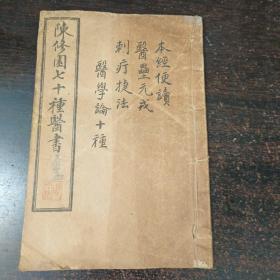 本經便讀
醫壘元戎
刺疔捷法
醫學論十種
陳修園七十種醫書